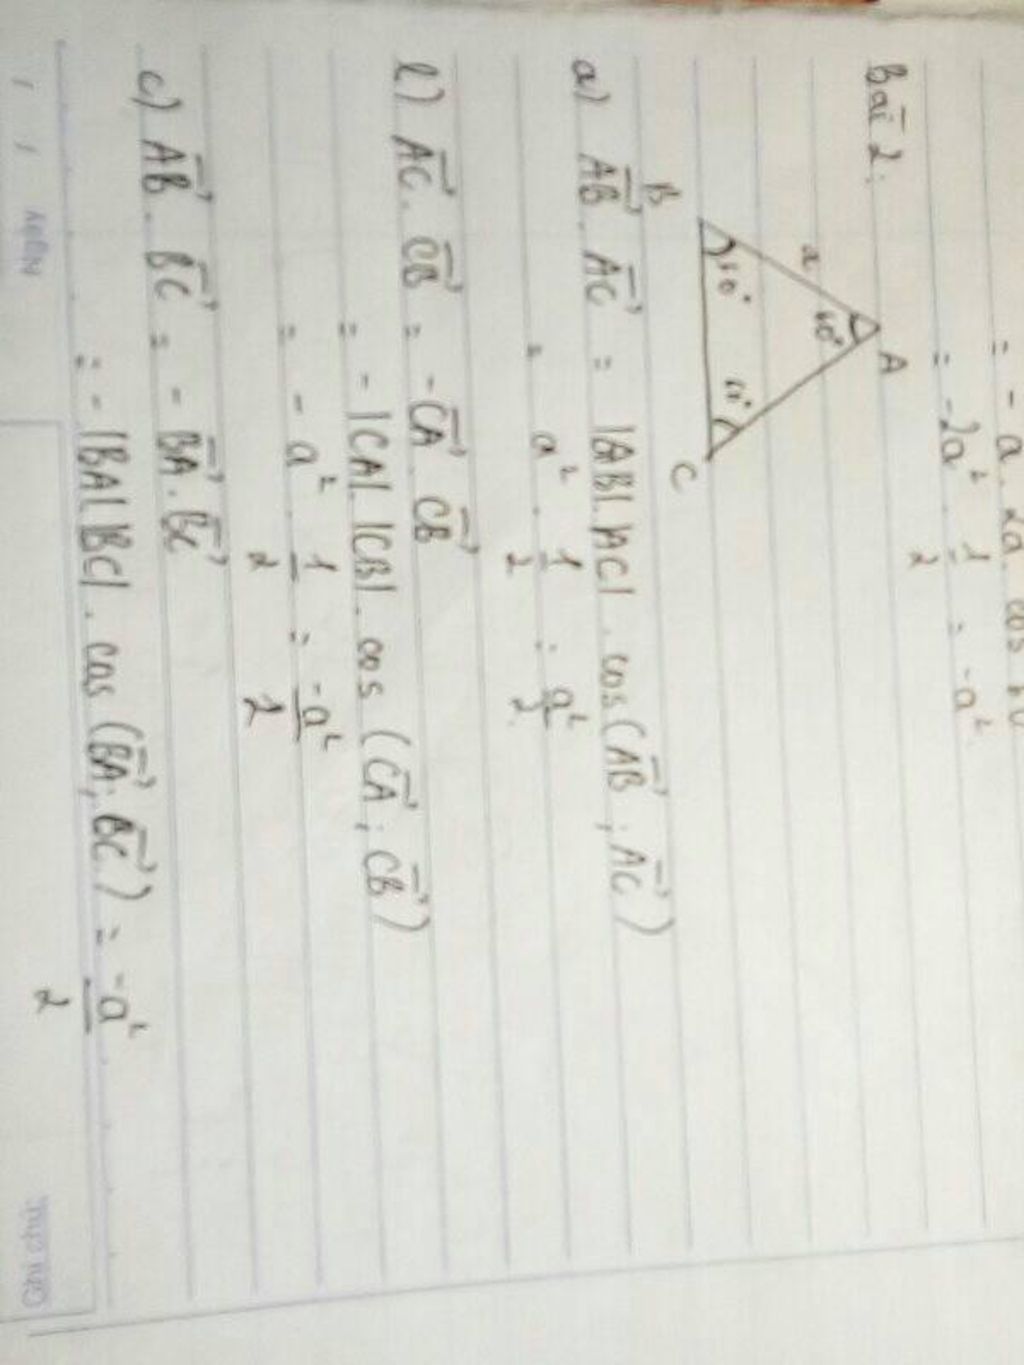 = - a . 2a . cos
= -2a² . 1/2 = -a²
Bài 2:
A
a
60°
B
60°
C
a) AB⃗ . AC⃗ = |AB| . |AC| . cos (AB⃗ ; AC⃗)
= a² . 1/2 = a²/2
b) AC⃗ . CB⃗ = -CA⃗ . CB⃗
= - |CA| . |CB| . cos (CA⃗ ; CB⃗)
= - a² . 1/2 = -a²/2
c) AB⃗ . BC⃗ = - BA⃗ . BC⃗
= - |BA| . |BC| . cos (BA⃗ ; BC⃗) = -a²/2
/ / NGÀY
Ghi chú: